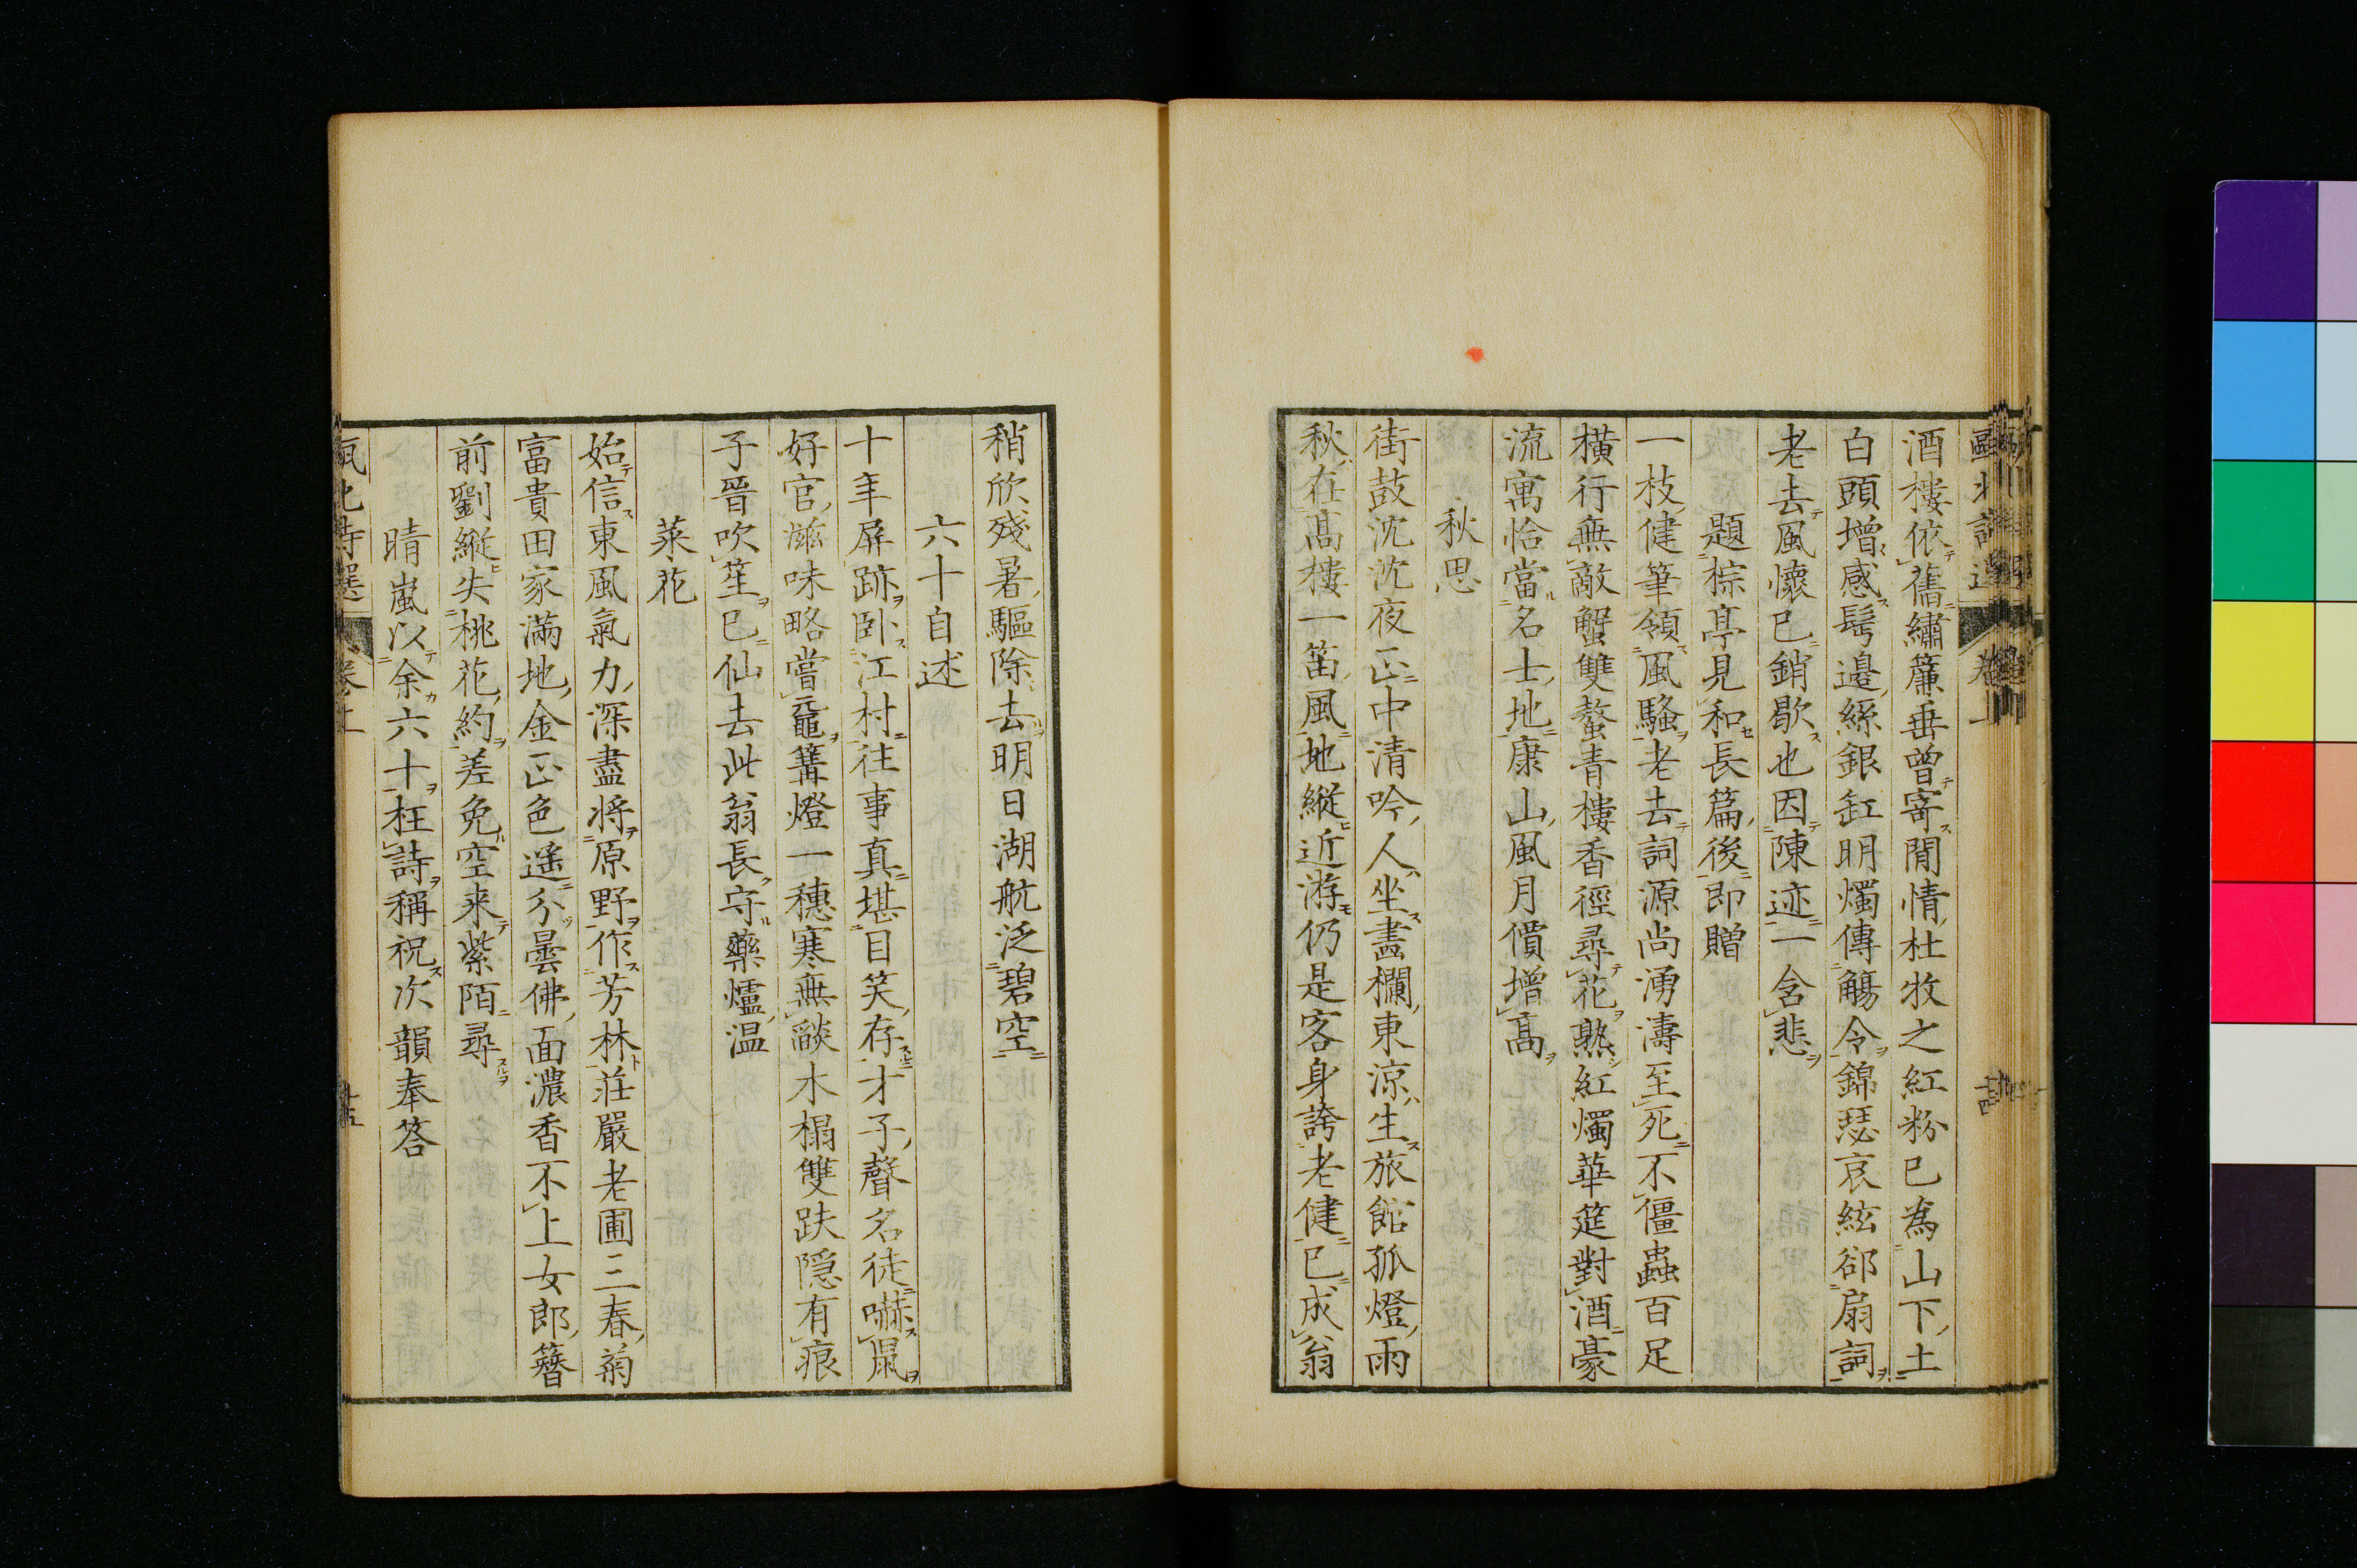 酒樓依舊繡簾垂曾寄閒情杜牧之紅粉已為山下土
白頭增感髩邊絲銀缸明燭傳觴令錦瑟哀絃郤扇詞
老去風懷已銷歇也因陳迹一含悲
題棕亭見和長篇後即贈
一枝健筆領風騷老去詞源尚湧濤至死不僵蟲百足
橫行無敵蟹雙螯青樓香徑尋花熟紅燭華筵對酒豪
流寓恰當名士地康山風月價增高
秋思
街鼓沈沈夜正中清吟人坐畵欄東涼生旅館孤燈雨
秋在高樓一笛風地縱近游仍是客身誇老健已成翁
稍欣殘暑驅除去明日湖航泛碧空
六十自述
十年屏跡卧江村往事真堪目笑存才子聲名徒嚇鼠
好官滋味略嘗黿篝燈一穗寒無談木榻雙趺隠有痕
子晉吹笙已仙去此翁長守藥爐温
菜花
始信東風氣力深盡將原野作芳林莊嚴老圃三春菊
富貴田家滿地金正色遥分曇佛面濃香不上女郎簪
前劉縱失桃花約差免空来紫陌尋
晴嵐以余六十枉詩稱祝次韻奉答